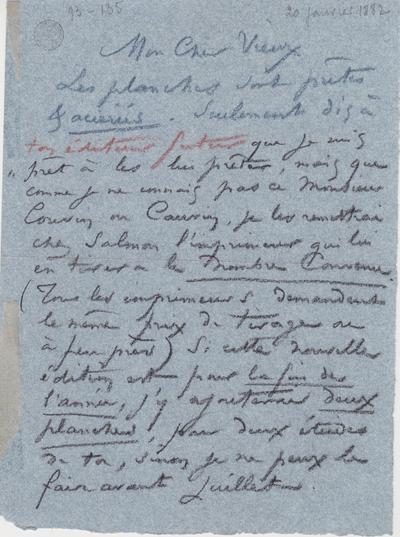 93-135 20 janvier 1882
Mon Cher Vieux
Les planches sont prêtes
& aciérées. Seulement dis à
ton éditeur futur que je suis
prêt à les lui prêter, mais que
comme je ne connais pas ce Monsieur
ou je les remettrai
chez Salmon l'imprimeur qui lui
en tirera le Nombre Convenu.
(Tous les imprimeurs demandent
le même prix de tirage ou
à peu près) Si cette nouvelle
édition est pour la fin de
l'année, j'y ajouterai deux
planches, pour deux études
de toi, sinon je ne peux les
faire avant Juillet.